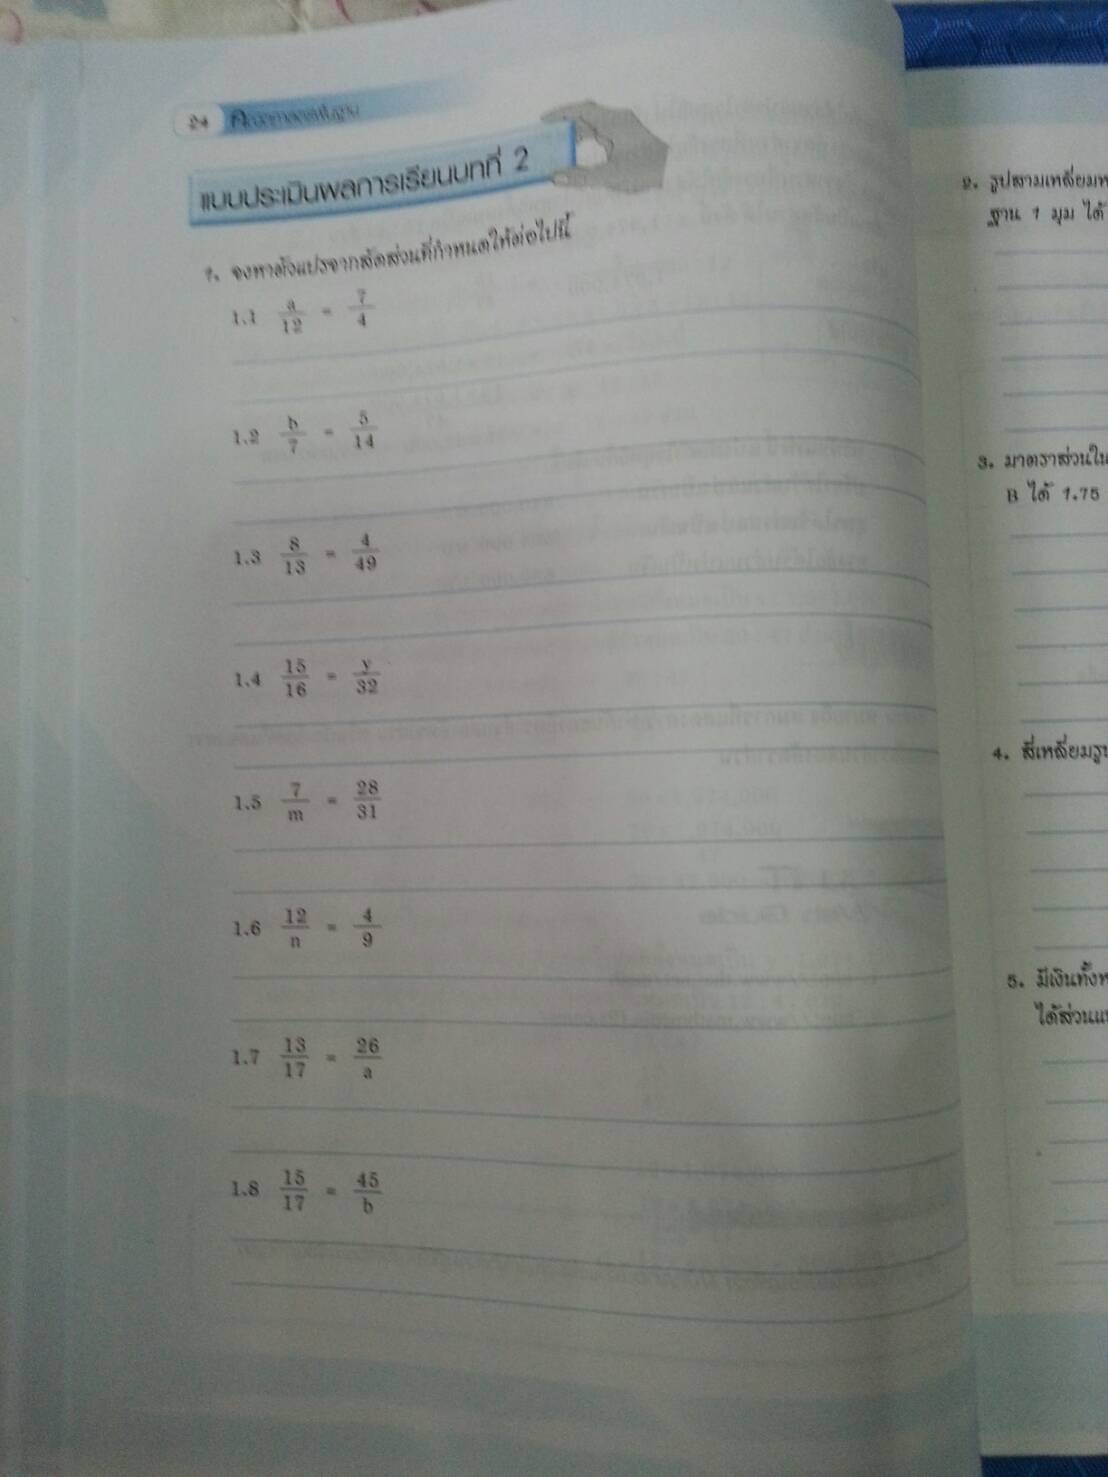 24 คณิตศาสตร์พื้นฐาน
แบบประเมินผลการเรียนบทที่ 2
1. จงหาตัวแปรจากสัดส่วนที่กำหนดให้ต่อไปนี้
1.1 a/12 = 7/4
1.2 b/7 = 5/14
1.3 8/13 = 4/49
1.4 15/16 = y/32
1.5 7/m = 28/31
1.6 12/n = 4/9
1.7 13/17 = 26/a
1.8 15/17 = 45/b
2. รูปสามเหลี่ยม
ฐาน 1 มุม ได้
3. มาตราส่วนใน
B ได้ 1.75
4. สี่เหลี่ยมรูป
5. มีเงินทั้ง
ได้ส่วนแ